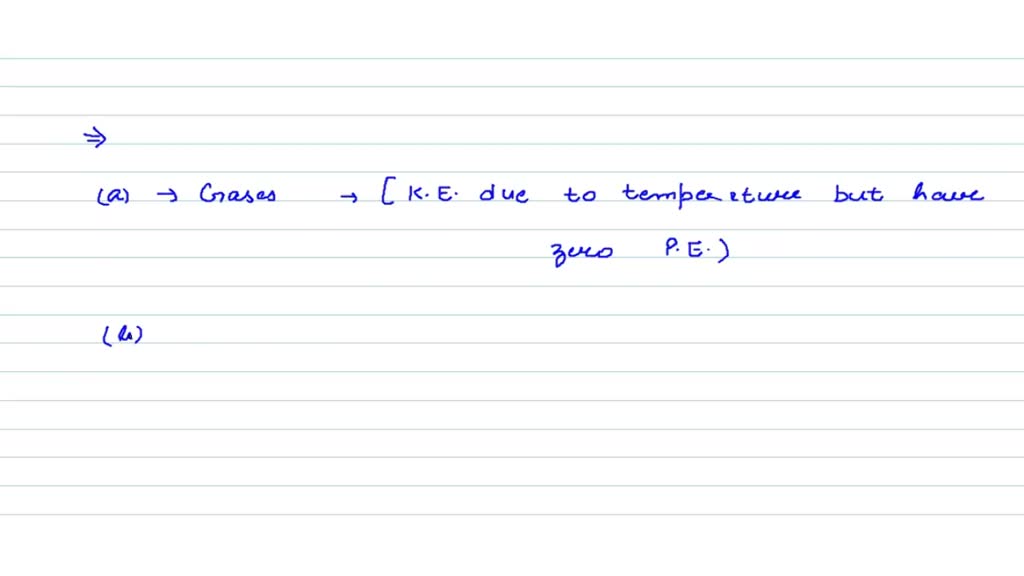 ⇒
(a) → Gases → [ K.E. due to temperature but have
zero P.E. )
(b)